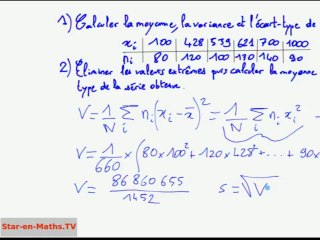 1) Calculer la moyenne, la variance et l'écart-type de
xi | 100 | 428 | 539 | 621 | 700 | 1000
ni | 80 | 120 | 100 | 130 | 140 | 90
2) Éliminer les valeurs extrêmes puis calculer la moyenne
type de la série obtenue.
V = 1/N ∑i ni(xi - x̄)² = 1/N ∑i ni xi²
V = 1/660 × (80×100² + 120×428² + ... + 90×
V = 86860655/1452 s = √V
Star-en-Maths.TV